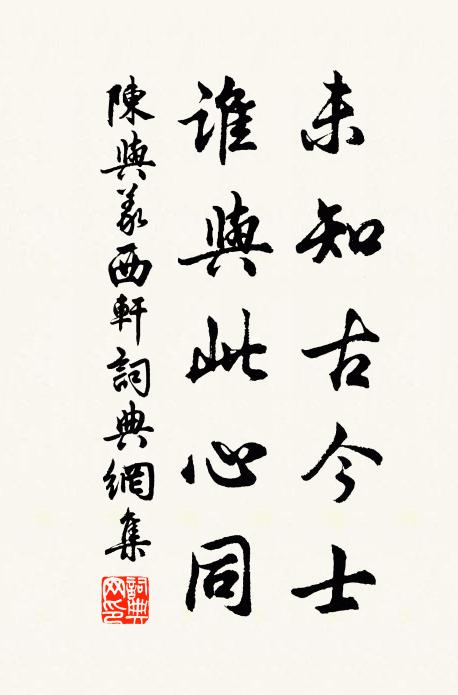 未知古今士
誰與此心同
陳與義西軒詞典網集
詞典网印